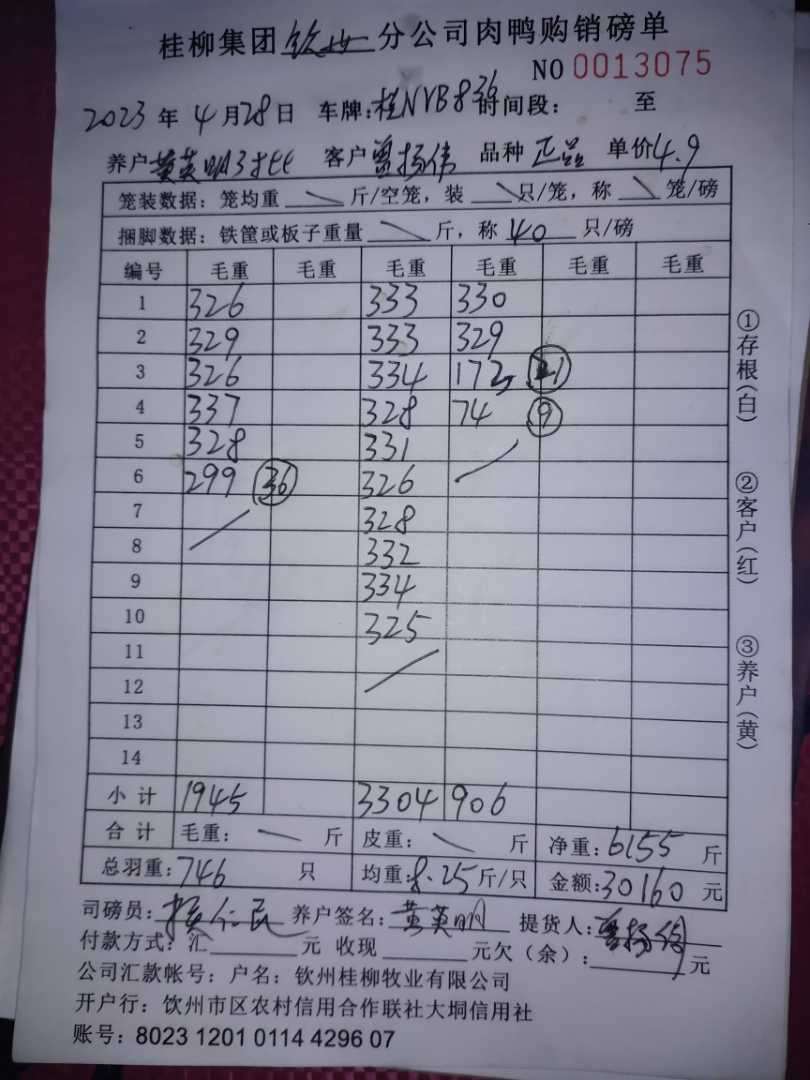 桂柳集团钦州分公司肉鸭购销磅单
NO 0013075
2023年4月28日 车牌:桂NYB836 时间段: 至
养户黄英明 客户曾扬伟 品种正品 单价4.9
笼装数据：笼均重 斤/空笼，装 只/笼，称 笼/磅
捆脚数据：铁筐或板子重量 斤，称40只/磅
编号 毛重 毛重 毛重 毛重 毛重 毛重
1 326 333 330
2 329 333 329
3 326 334 172 21
4 337 328 74 9
5 328 331
6 299 36 326
7 328
8 332
9 334
10 325
11
12
13
14
小计 1945 3304 906
合计 毛重： 斤 皮重： 斤 净重:6155斤
总羽重:746 只 均重:8.25斤/只 金额:30160元
司磅员: 养户签名:黄英明 提货人:曾扬伟
付款方式：汇 元 收现 元欠（余）： 元
公司汇款帐号：户名：钦州桂柳牧业有限公司
开户行：饮州市区农村信用合作联社大垌信用社
账号：8023 1201 0114 4296 07
①存根(白)
②客户(红)
③养户(黄)